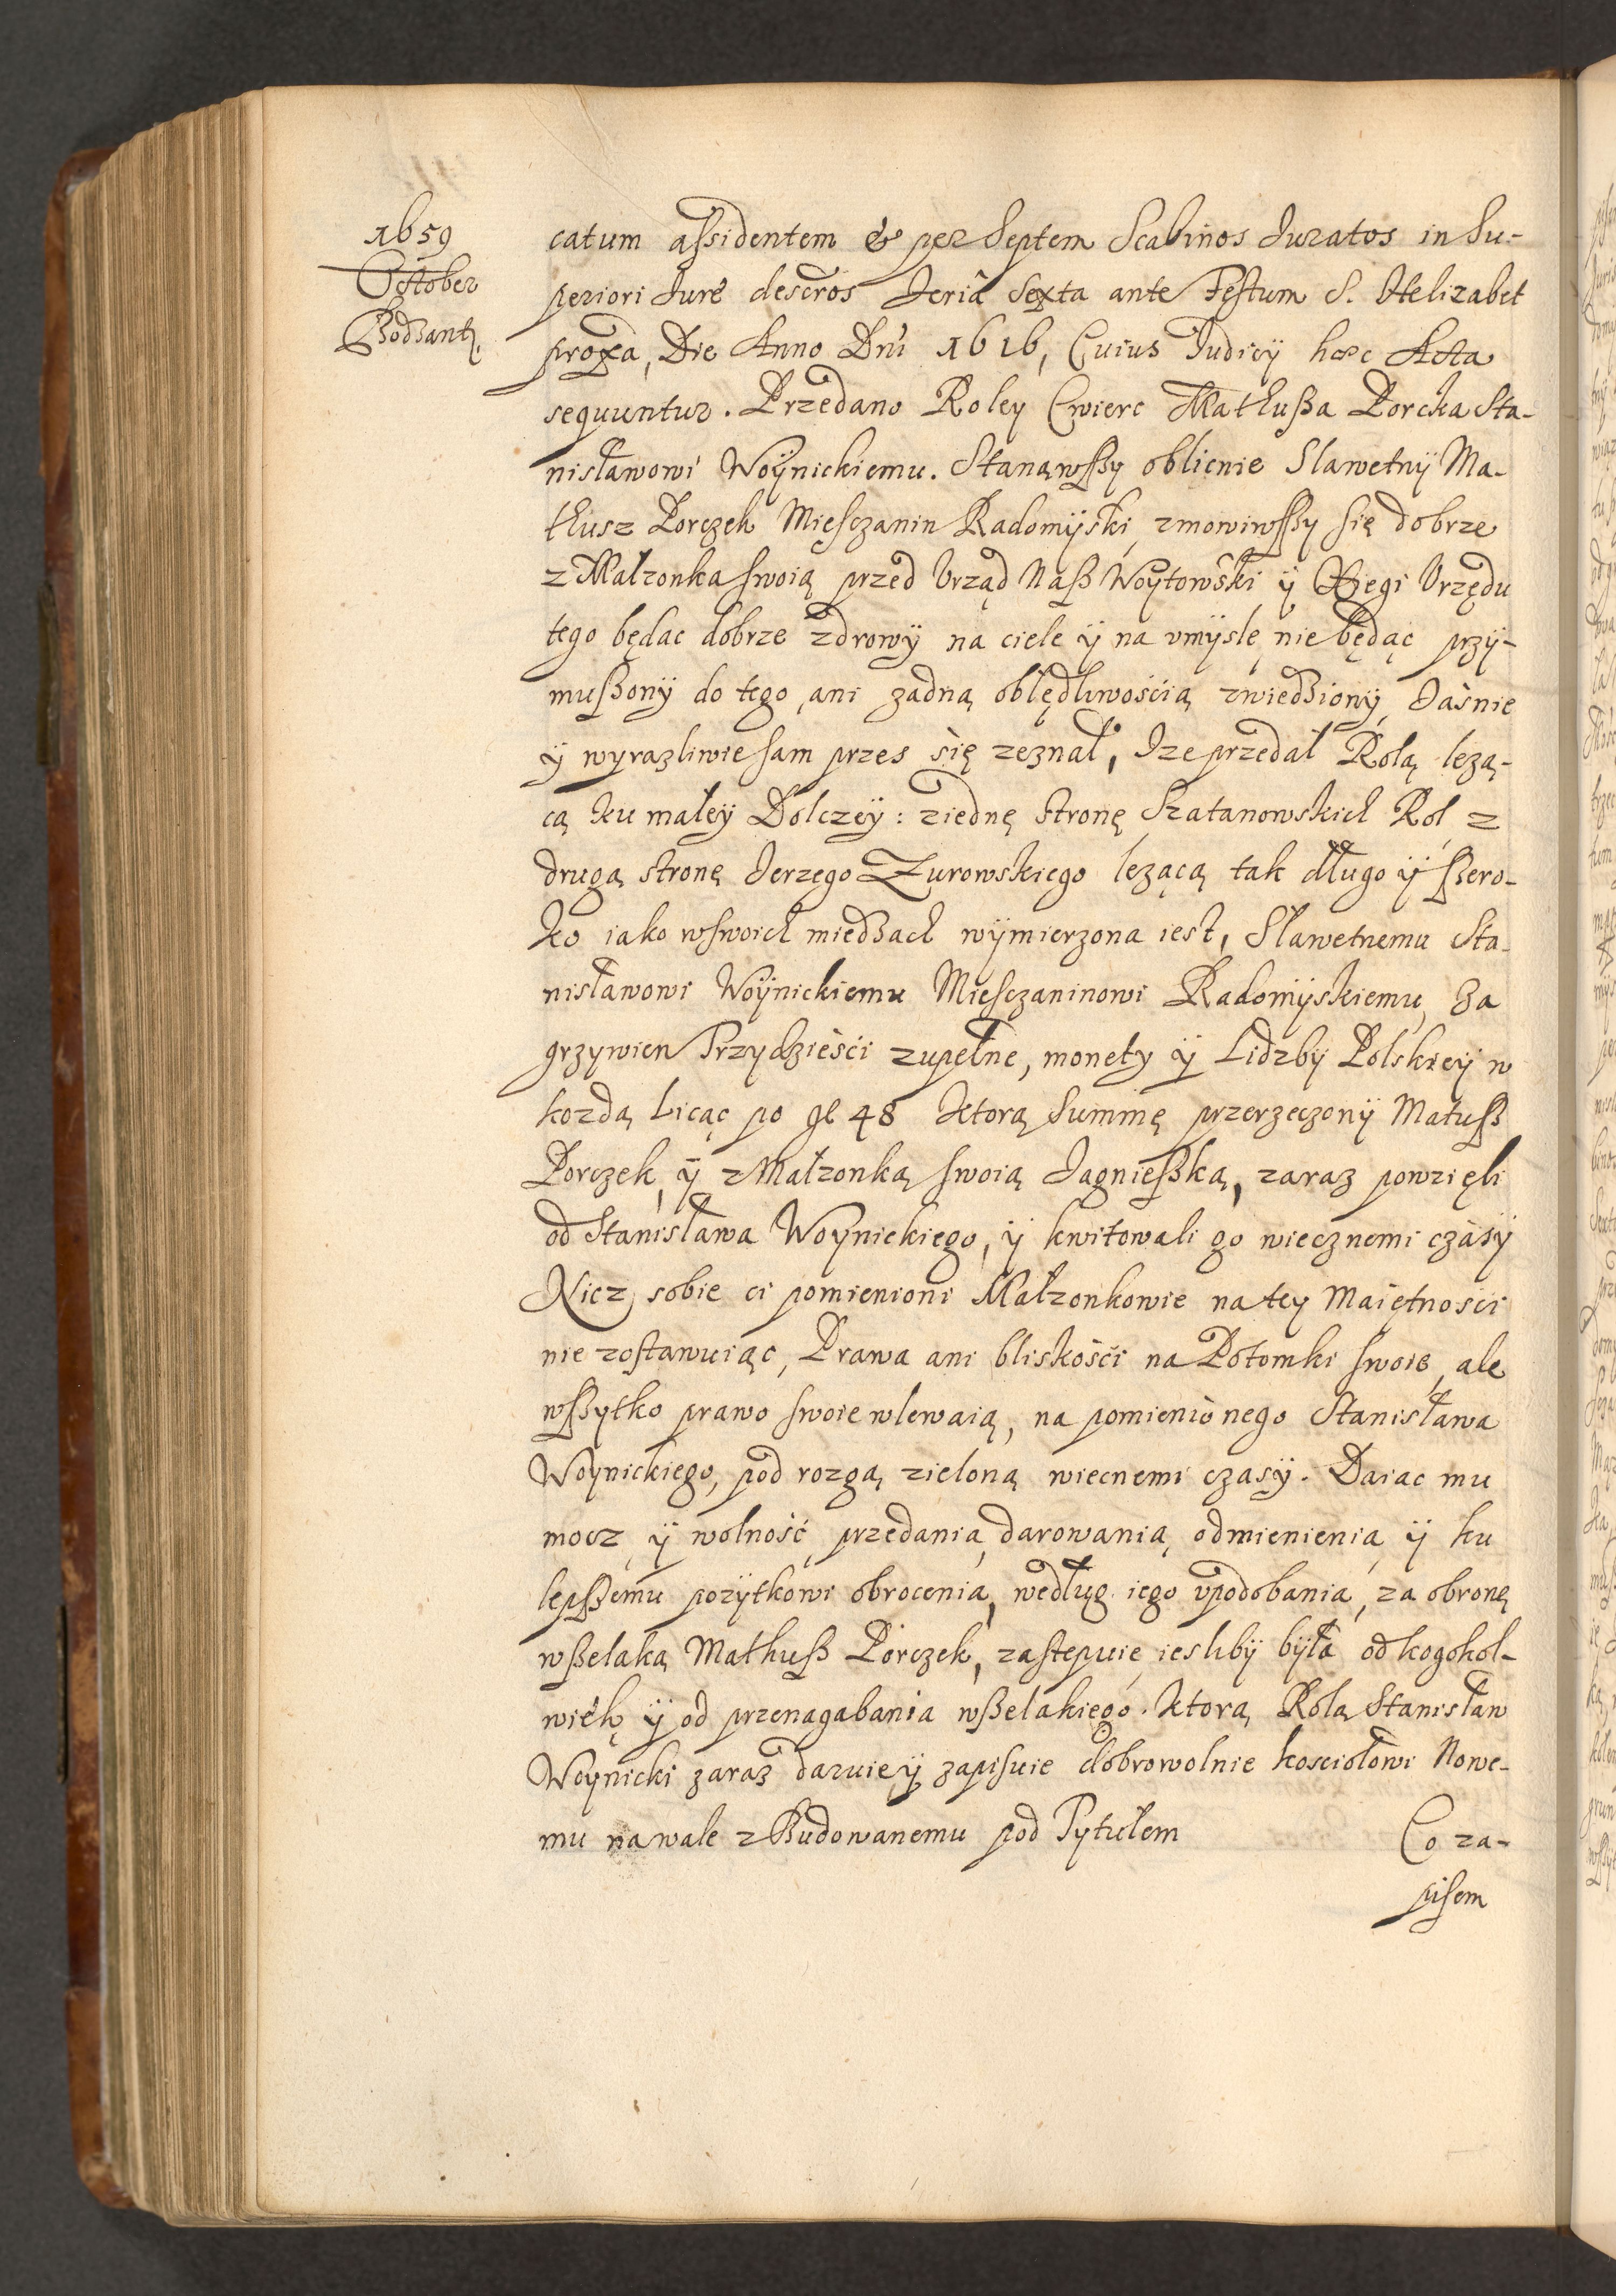 1659
October
Bodzant.
catum assidentem & per Septem Scabinos Juratos in Su-
periori Jure descros Feria Sexta ante Festum S. Helizabet
proxa, Die Anno Dni 1616, Cuius Judicÿ hæc Acta
sequuntur. Przedano Roley Cwierc Mathußa Porcka Sta-
nisławowi Woÿnickiemu. Stanąwßy oblicnie Slawetnÿ Ma-
thusz Porczek Miesczanin Radomÿski, zmowiwßy się dobrze
z Małzonka swoią przed Vrząd Naß Woÿtowski ÿ Xięgi Vrzędu
tego będac dobrze zdrowÿ na ciele ÿ na vmÿslę nie będąc przÿ-
mußonÿ do tego, ani zadną oblędliwością zwiedzionÿ, Jaśnie
ÿ wyrazliwie sam przes się zeznał, Jze przedał Rolą lezą-
cą ku małeÿ Dolczeÿ: ziednę stronę Szatanowskich Rol, z
drugą stronę Jerzego Zurowskiego lezącą tak długo ÿ ßero-
ko iako wswoich miedzach wÿmierzona iest, Sławetnemu Sta-
nisławowi Woÿnickiemu Miesczaninowi Radomÿskiemu, za
grzywien Trzydzieści zupełne, monety ÿ Lidzbÿ Polskieÿ w
kozdą Licąc po gł 48 Ktorą Summę przerzeczonÿ Matuß
Porczek, ÿ z Małzonką swoią Jagnießką, zaraz powzięli
od Stanisława Woynickiego, ÿ kwitowali go wiecznemi czasÿ
Nicz sobie ci pomienioni Małzonkowie na tey Maiętności
nie zostawuiąc, Prawa ani bliskości na Potomki swoie, ale
wßytko prawo swoie wlewaią, na pomienionego Stanisława
Woynickiego, pod rozgą zieloną wiecnemi czasÿ. Daiac mu
mocz, ÿ wolność, przedania, darowania, odmienienia, ÿ ku
lepßemu pozÿtkowi obrocenia, według iego vpodobania, za obronę
wßelaką Mathuß Porczek, zastepuie iesliby była od kogokol-
wiek, ÿ od przenagabania wßelakiego. Ktorą Rolą Stanisław
Woynicki zaraz daruie ÿ zapisuie dobrowolnie kosciołowi Nowe-
mu na wale z Budowanemu pod Tytułem Co za-
pisem